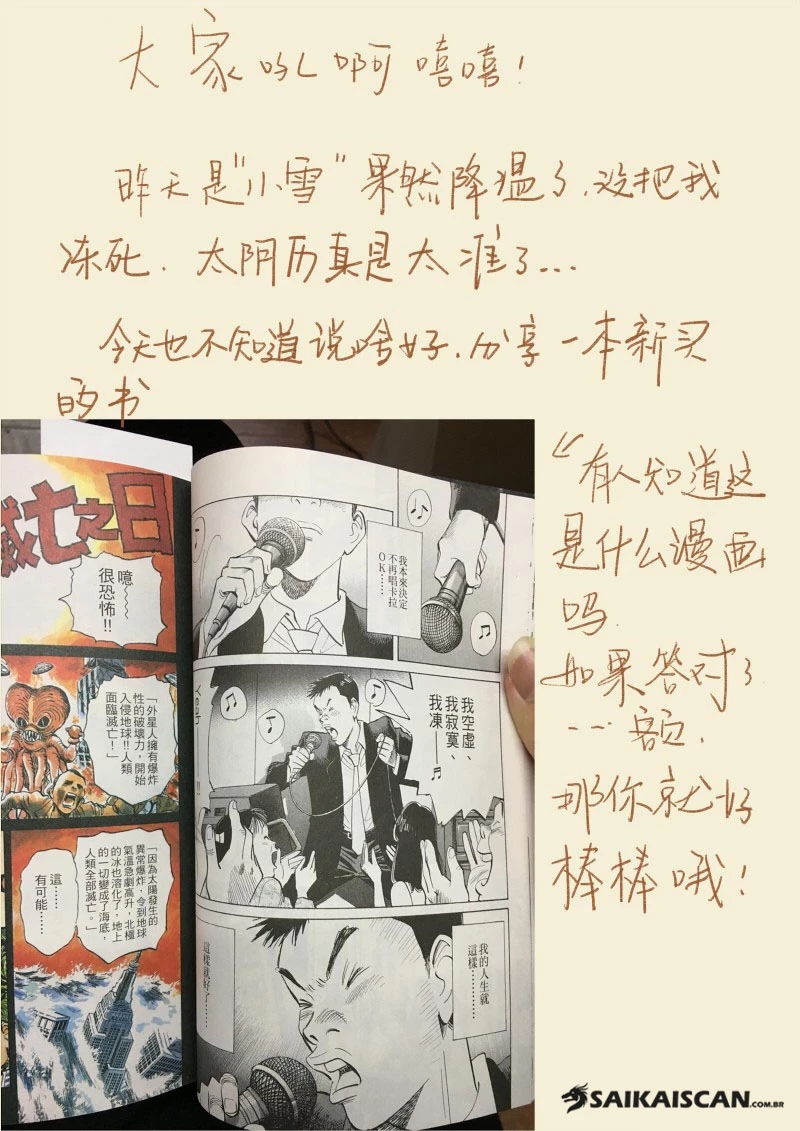 大家吼啊嘻嘻！
昨天是"小雪"果然降温了，没把我
冻死．太阴历真是太准了…
今天也不知道说啥好，分享一本新买
的书
有人知道这
是什么漫画
吗．
如果答对了
……额，
那你就好
棒棒哦！
滅亡之日
噫～～～
很恐怖!!
「外星人擁有爆炸
性的破壞力，開始
入侵地球!!人類
面臨滅亡！」
「因為太陽發生的
異常爆炸，令到地球
氣溫急劇高升，北極
的冰也溶化了。地上
的一切變成了海底，
人類全部滅亡。」
這……
有可能……
我本來決定
不再唱卡拉
OK……
我空虛、
我寂寞、
我凍—
Yeah
!!
我的人生就
這樣……
這樣就好了……
SAIKAISCAN.COM.BR